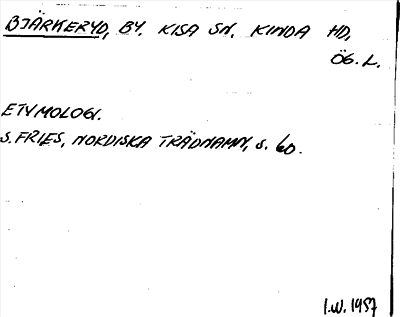 BJÄRKERYD, BY. KISA SN. KINDA HD,
ÖG. L.
ETYMOLOGI.
S. FRIES, NORDISKA TRÄDNAMN, S. 60.
I.W. 1957